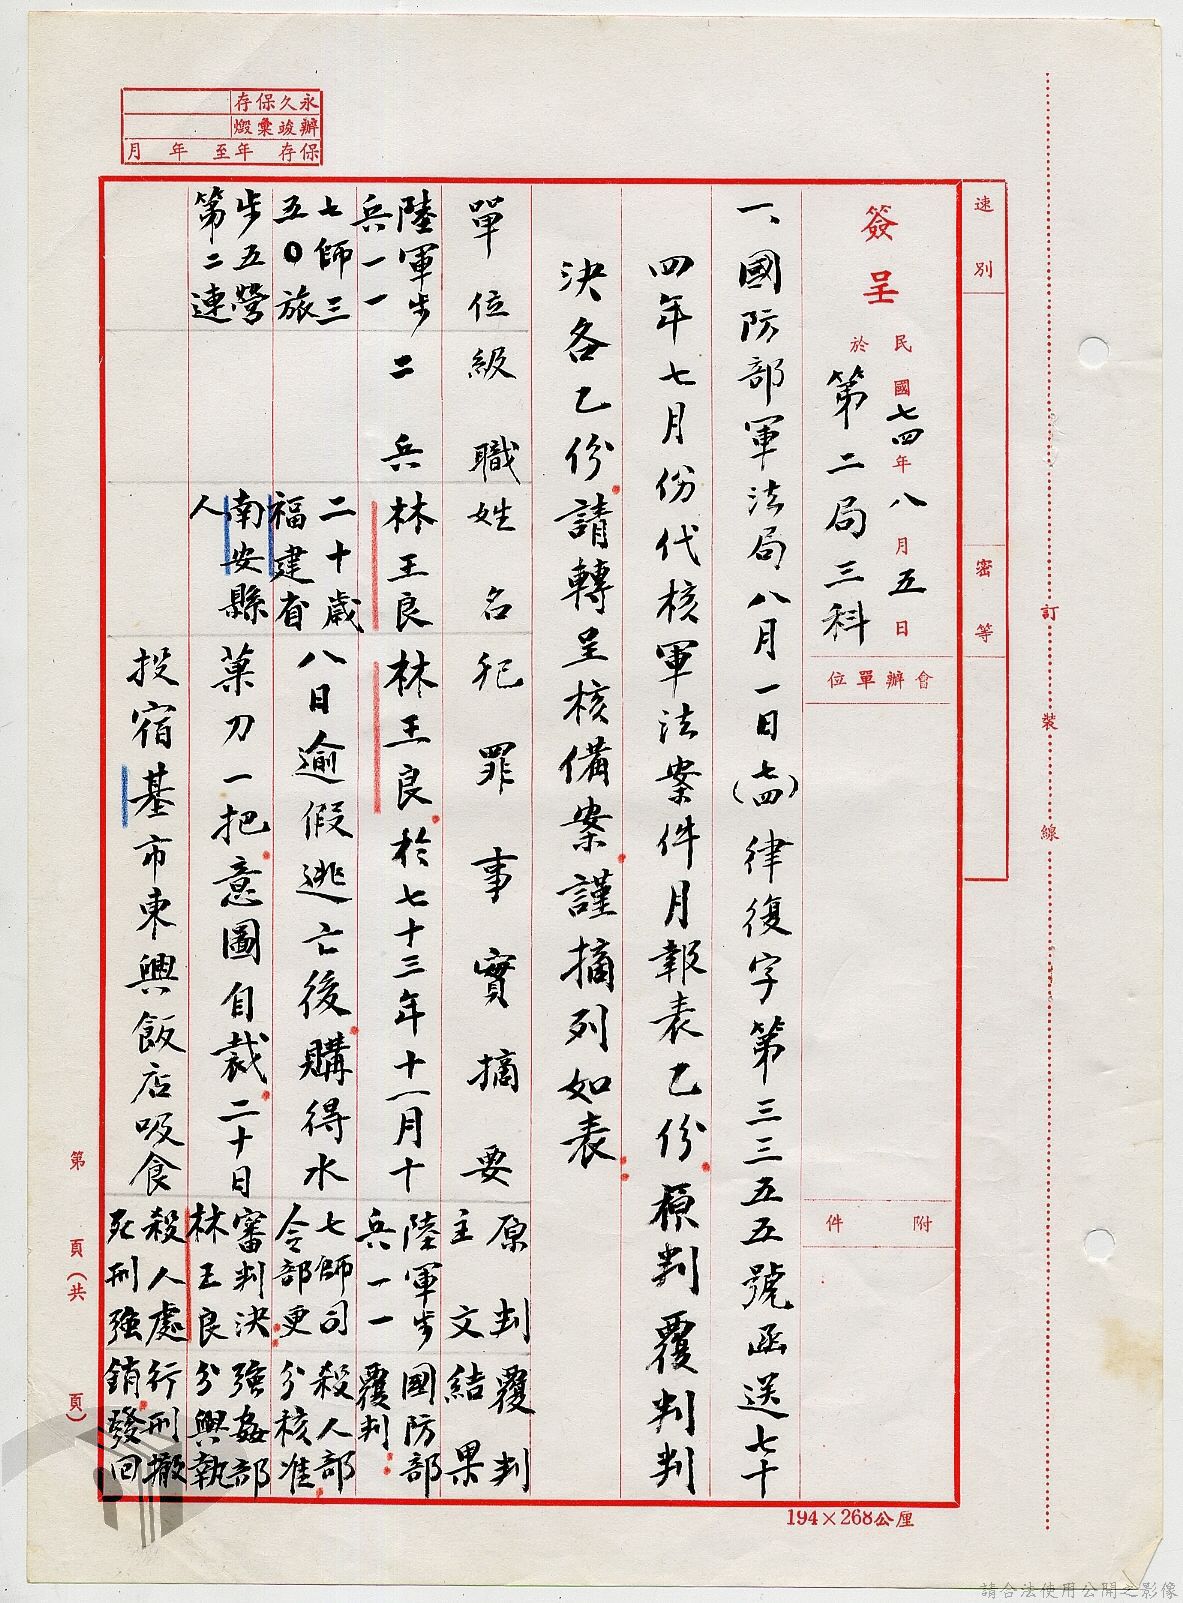 永久保存
辦竣彙燬
保存　年至　年　月
速別
密等
訂裝線
簽呈
民國七四年八月五日
於第二局三科
會辦單位
附件
一、國防部軍法局八月一日(七四)律復字第三三五五號函送七十
四年七月份代核軍法案件月報表乙份。原判覆判判
決各乙份。請轉呈核備案。謹摘列如表：
單位
級職
姓名
犯罪事實摘要
原判主文
覆判結果
陸軍步
兵一一
七師三
五〇旅
步五營
第二連
二兵
林王良
二十歲
福建省
南安縣
人
林王良。於七十三年十一月十
八日逾假逃亡後。購得水
菓刀一把。意圖自裁。二十日
投宿基市東興飯店吸食
陸軍步
兵一一
七師司
令部更
審判決：
林王良
殺人處
死刑強
國防部
覆判：
殺人部
分核准。
強姦部
分與執
行刑撤
銷。發回
第　頁(共　頁)
194×268公厘
請合法使用公開之影像